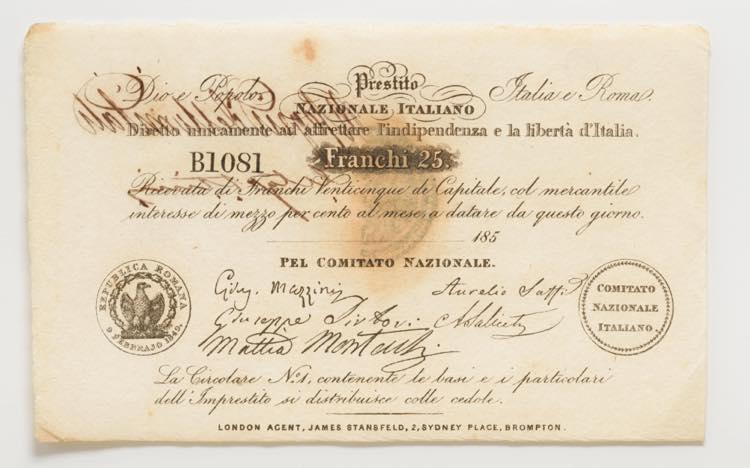 Dio e Popolo. Prestito Italia e Roma.
NAZIONALE ITALIANO
Diretto unicamente ad affrettare l'indipendenza e la libertà d'Italia.
B1081 Franchi 25.
Ricevuta di Franchi Venticinque di Capitale, col mercantile
interesse di mezzo per cento al mese, a datare da questo giorno.
185
PEL COMITATO NAZIONALE.
REPUBLICA ROMANA
9 FEBBRAJO 1849.
Gius. Mazzini Aurelio Saffi
Giuseppe Sirtori A Saliceti
Mattia Montecchi
COMITATO
NAZIONALE
ITALIANO
La Circolare No. 1, contenente le basi e i particolari
dell'Imprestito si distribuisce colle cedole.
LONDON AGENT, JAMES STANSFELD, 2, SYDNEY PLACE, BROMPTON.